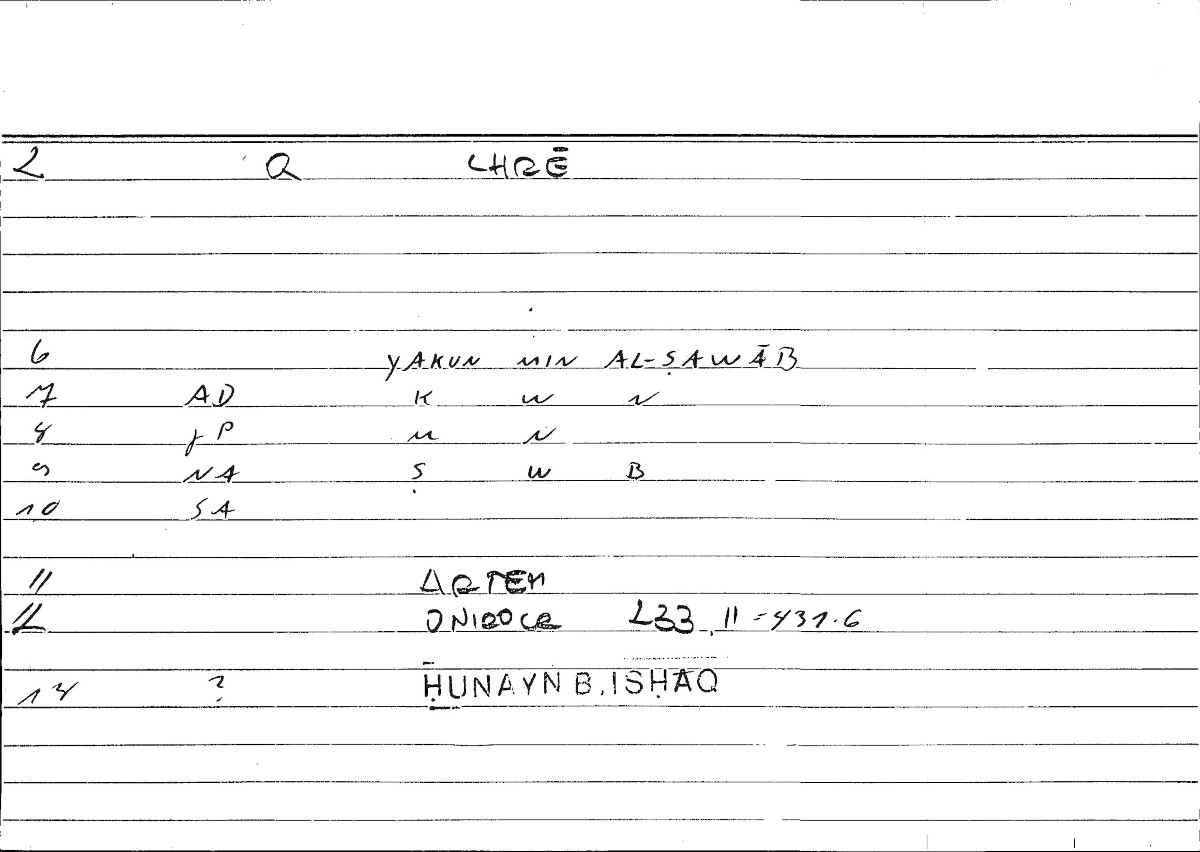 2 Q CHRĒ
6 YAKUN MIN AL-ṢAWĀB
7 AD K W N
8 JP M N
9 NA Ṣ W B
10 SA
11 ARTEM
12 ONIROCR 233,11=431.6
14 ? ḤUNAYN B. ISḤĀQ